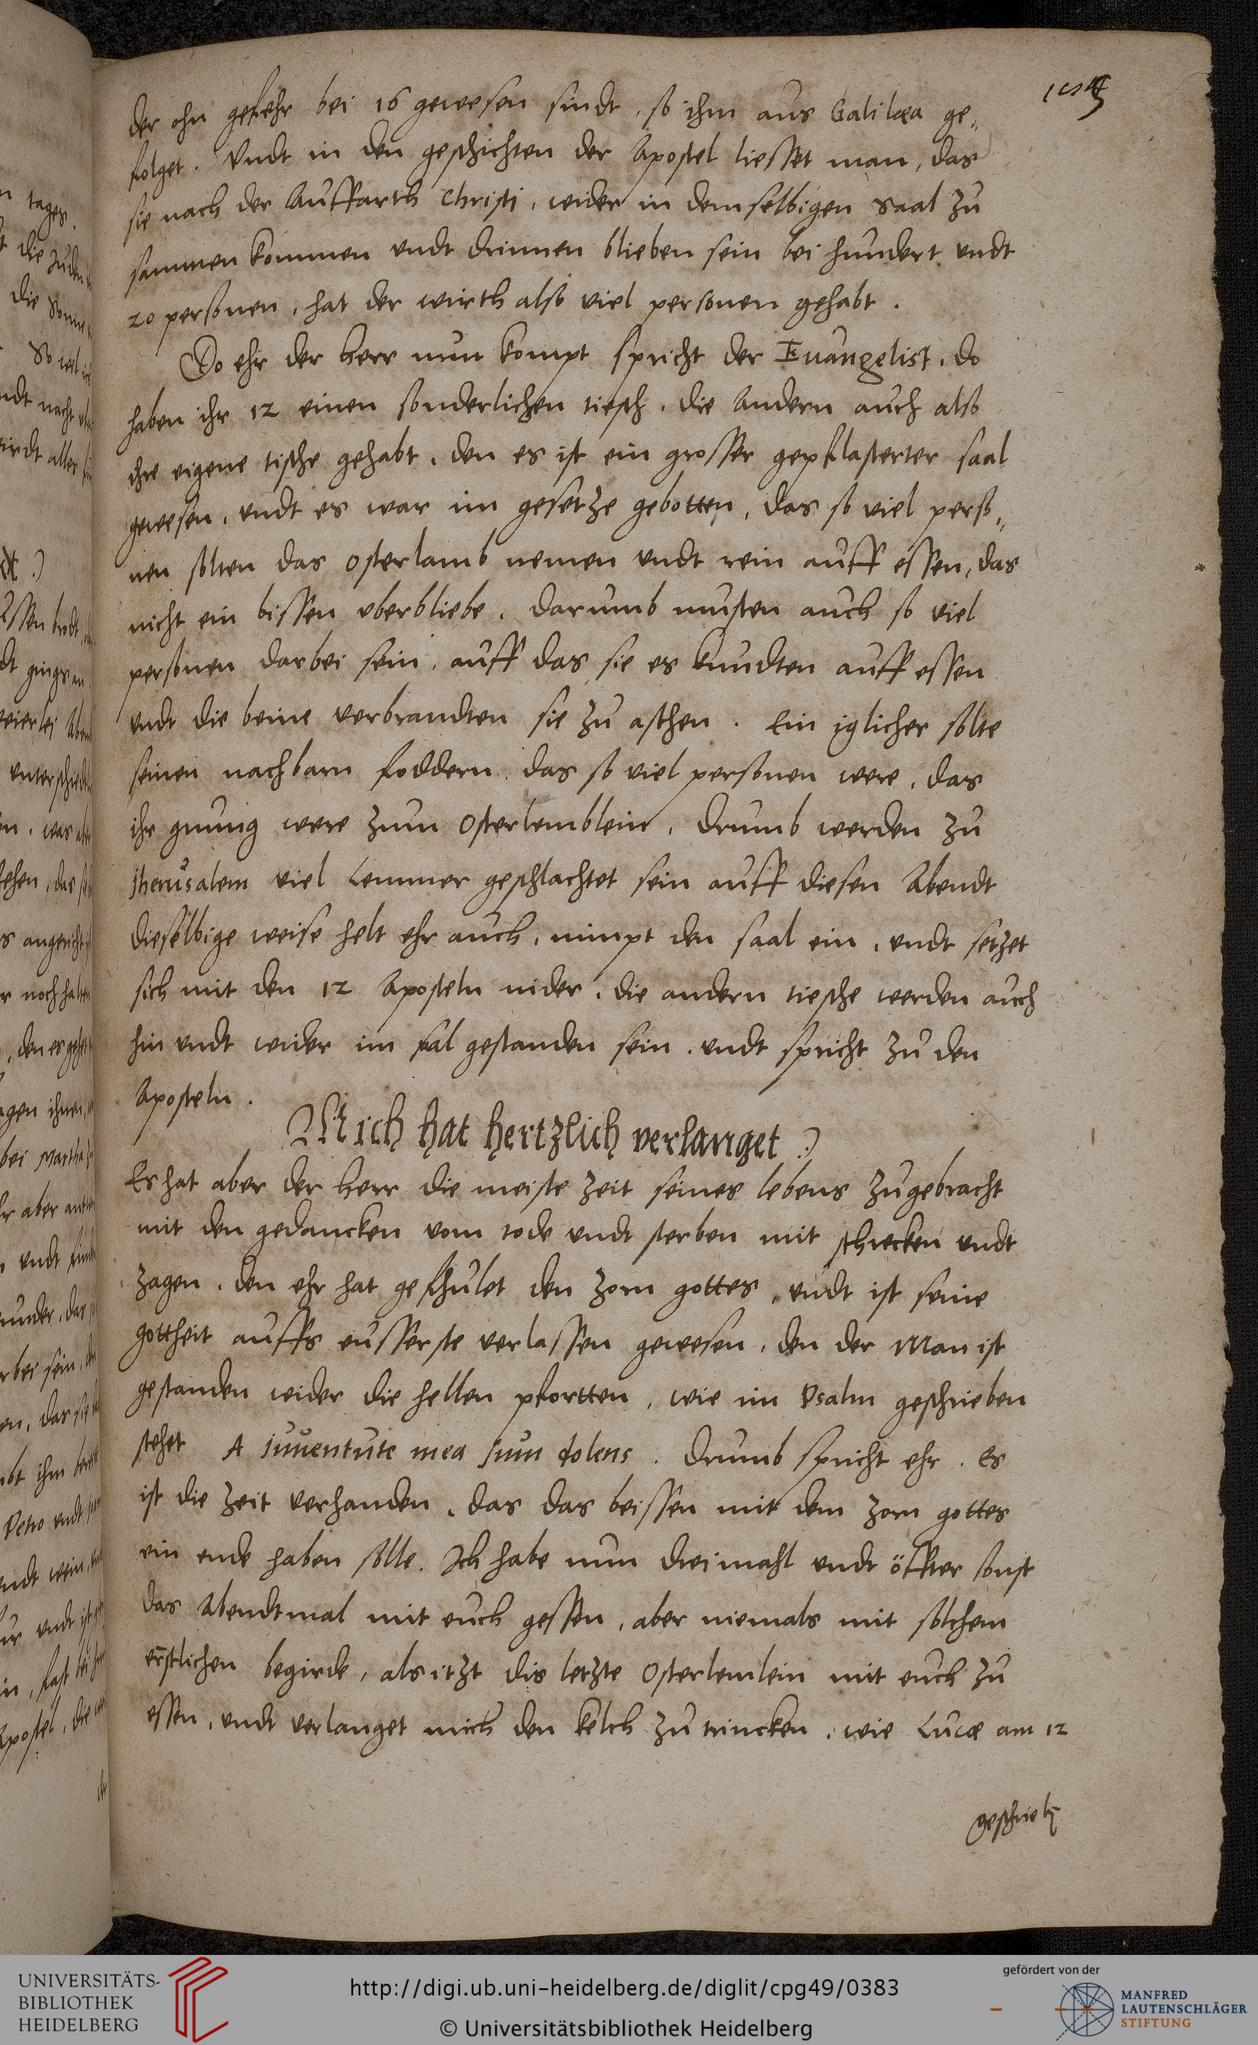 der ohn gefehr bei 16 gewesen sindt, so ihm aus Galilaea ge„
folget. Vndt in den geschichten der Apostel liesset man, das
sie nach der Auffarth Christi, wider in demselbigen Saal zu
sammen kommen vndt drinnen blieben sein bei hundert vndt
20 personen, hat der wirth also viel personen gehabt.
Do ehr der herr nun kompt spricht der Euangelist, do
haben ihr 12 einen sonderlichen tiesch, die Andern auch also
ihre eigene tische gehabt, den es ist ein grosser gepflasterter saal
gewesen, vndt es war im gesetze gebotten, das so viel perso„
nen solten das Osterlamb nemen vndt rein auff essen, das
nicht ein bissen vberbliebe. Darumb musten auch so viel
personen darbei sein, auff das sie es kundten auff essen
vndt die beine verbrandten sie zu aschen. Ein iglicher solte
seinen nachbarn foddern, das so viel personen were, das
ihr gnung were zum Osterlemblein, Drumb werden zu
Iherusalem viel Lemmer geschlachtet sein auff diesen Abendt
dieselbige weise helt ehr auch, nimpt den saal ein, vndt setzet
sich mit den 12 Aposteln nider, die andern tiesche werden auch
hin vndt wider im sal gestanden sein, vndt spricht zu den
Aposteln.
Mich hat hertzlich verlanget
Es hat aber der herr die meiste zeit seines lebens zugebracht
mit den gedancken vom tode vndt sterben mit schrecken vndt
zagen, den ehr hat gefhulet den zorn gottes, vndt ist seine
gottheit auffs eusserste verlassen gewesen, den der Man ist
gestanden wider die hellen pfortten, wie im Psalm geschrieben
stehet A iuuentute mea sum dolens. Drumb spricht ehr. Es
ist die zeit verhanden, das das beissen mit dem zorn gottes
ein ende haben solle. Ich habe nun dreimahl vndt öffter sonst
das Abendtmal mit euch gessen, aber niemals mit solchem
ernstlichen begirde, als itzt dis letzte Osterlemlein mit euch zu
essen, vndt verlanget mich den kelch zu trincken, wie Lucae am 12
geschrieb
UNIVERSITÄTS-
BIBLIOTHEK
HEIDELBERG
http://digi.ub.uni-heidelberg.de/diglit/cpg49/0383
© Universitätsbibliothek Heidelberg
gefördert von der
MANFRED
LAUTENSCHLÄGER
STIFTUNG